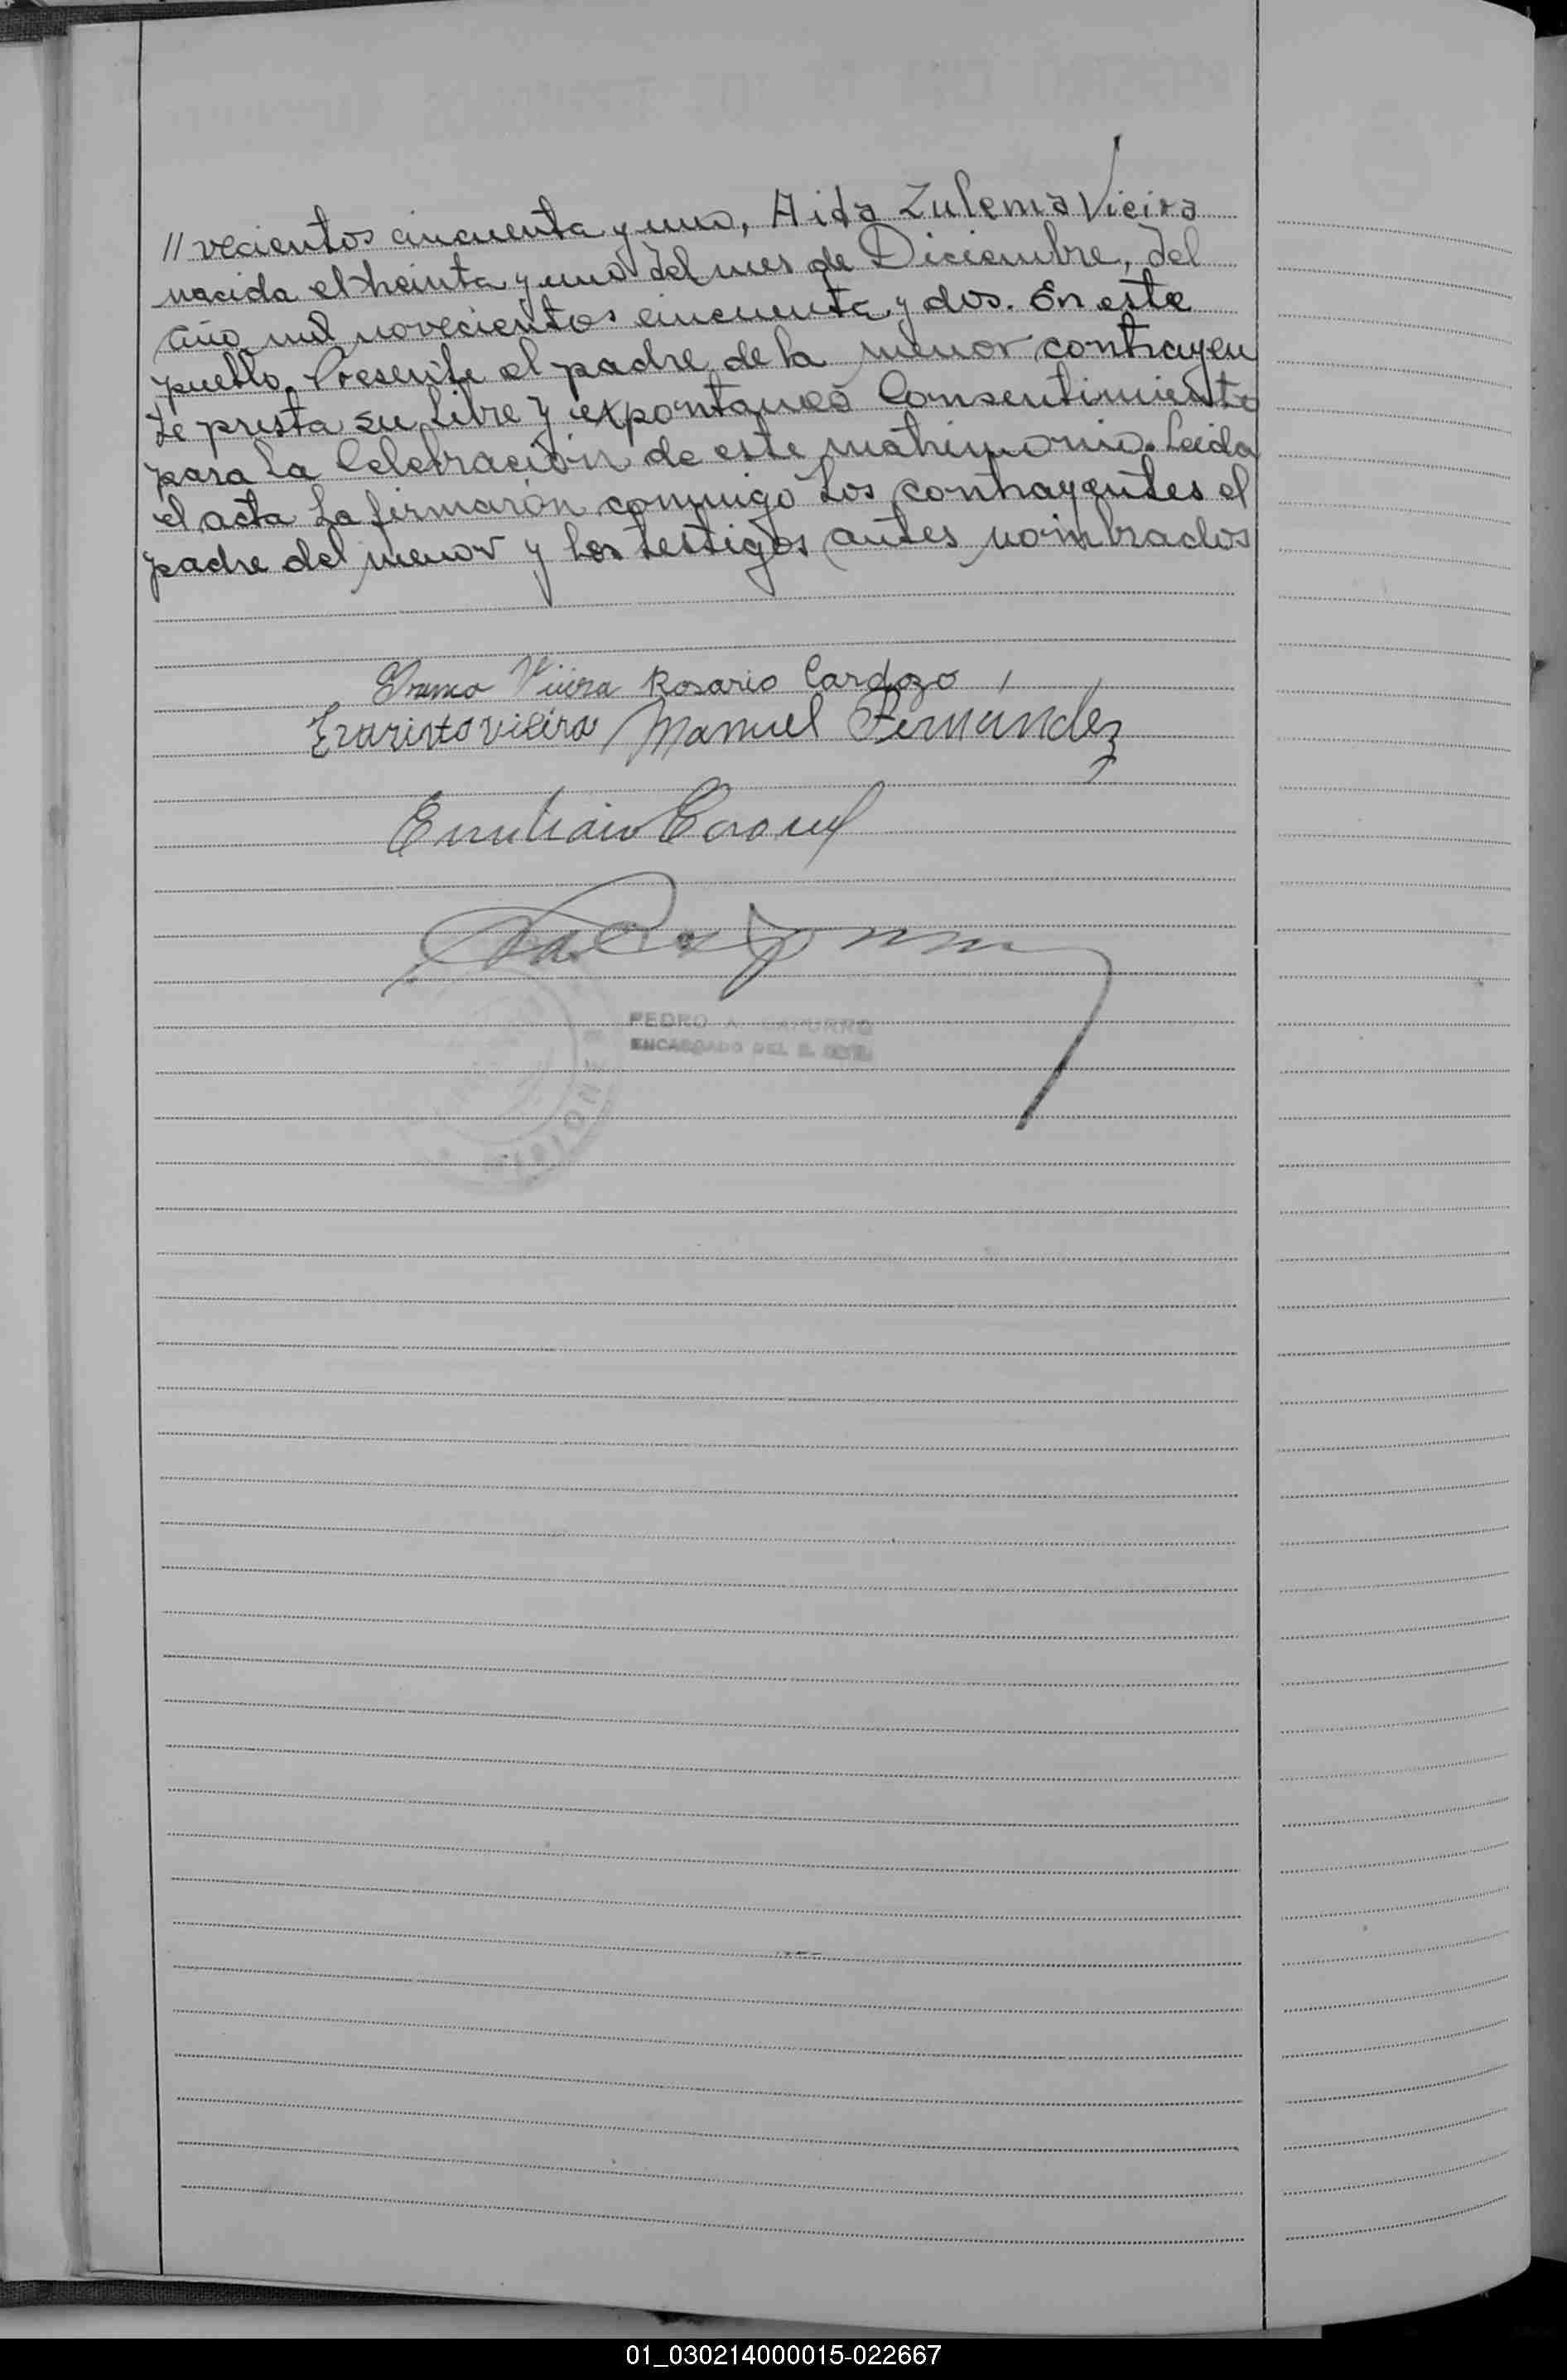 // vecientos cincuenta y uno, Aida Zulema Vieira
nacida el treinta y uno del mes de Diciembre, del
año mil novecientos cincuenta y dos. En este
pueblo. Presente el padre de la menor contrayen
te presta su libre y expontaneo Consentimiento
para la Celebración de este matrimonio. Leida
el acta la firmarón conmigo los contrayentes el
padre del menor y los testigos antes nombrados
Vieira Rosario Cardozo
Evaristo vieira Manuel Fernández
Emiliano
PEDRO A. CAPURRO
ENCARGADO DEL R. CIVIL
01_030214000015-022667